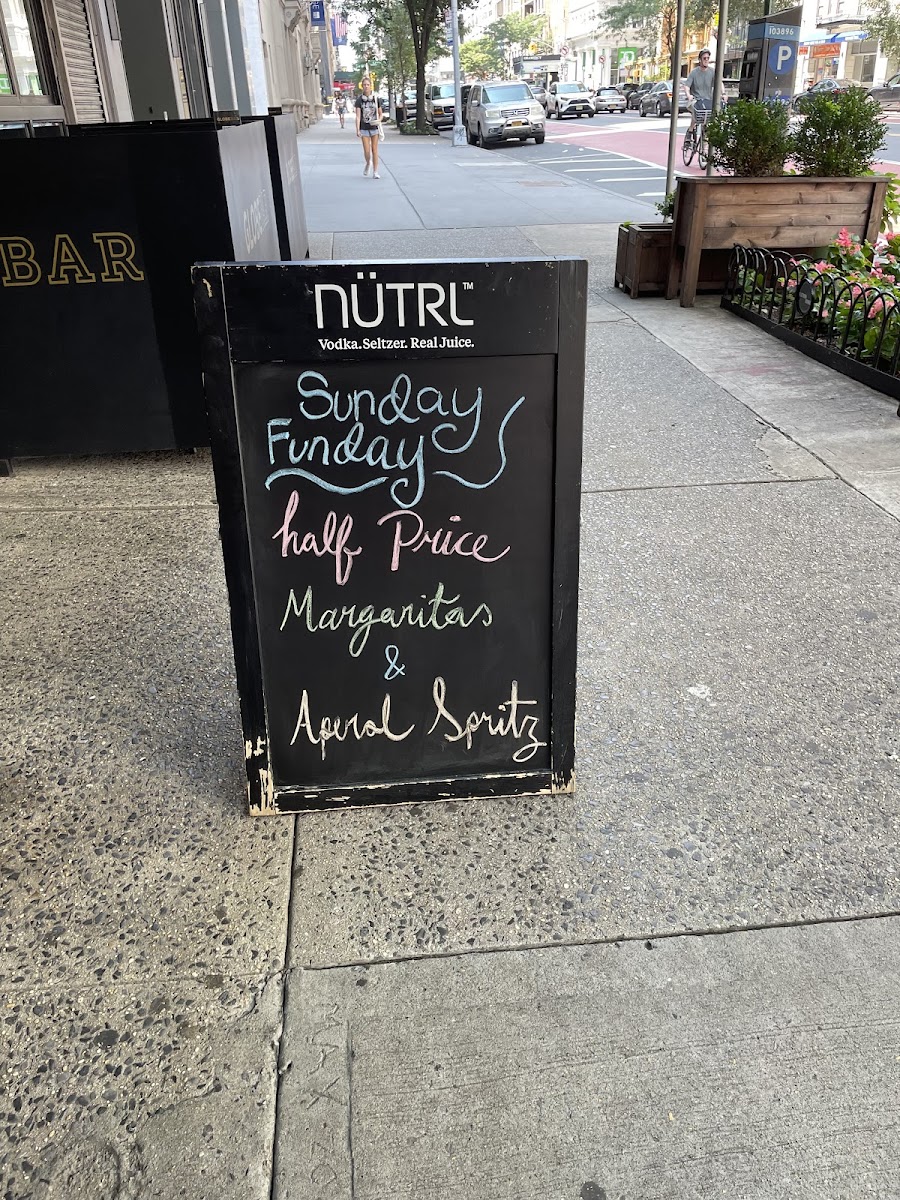 NÜTRL™
Vodka.Seltzer. Real Juice.
Sunday
Funday
half Price
Margaritas
&
Aperol Spritz
BAR
103896
P